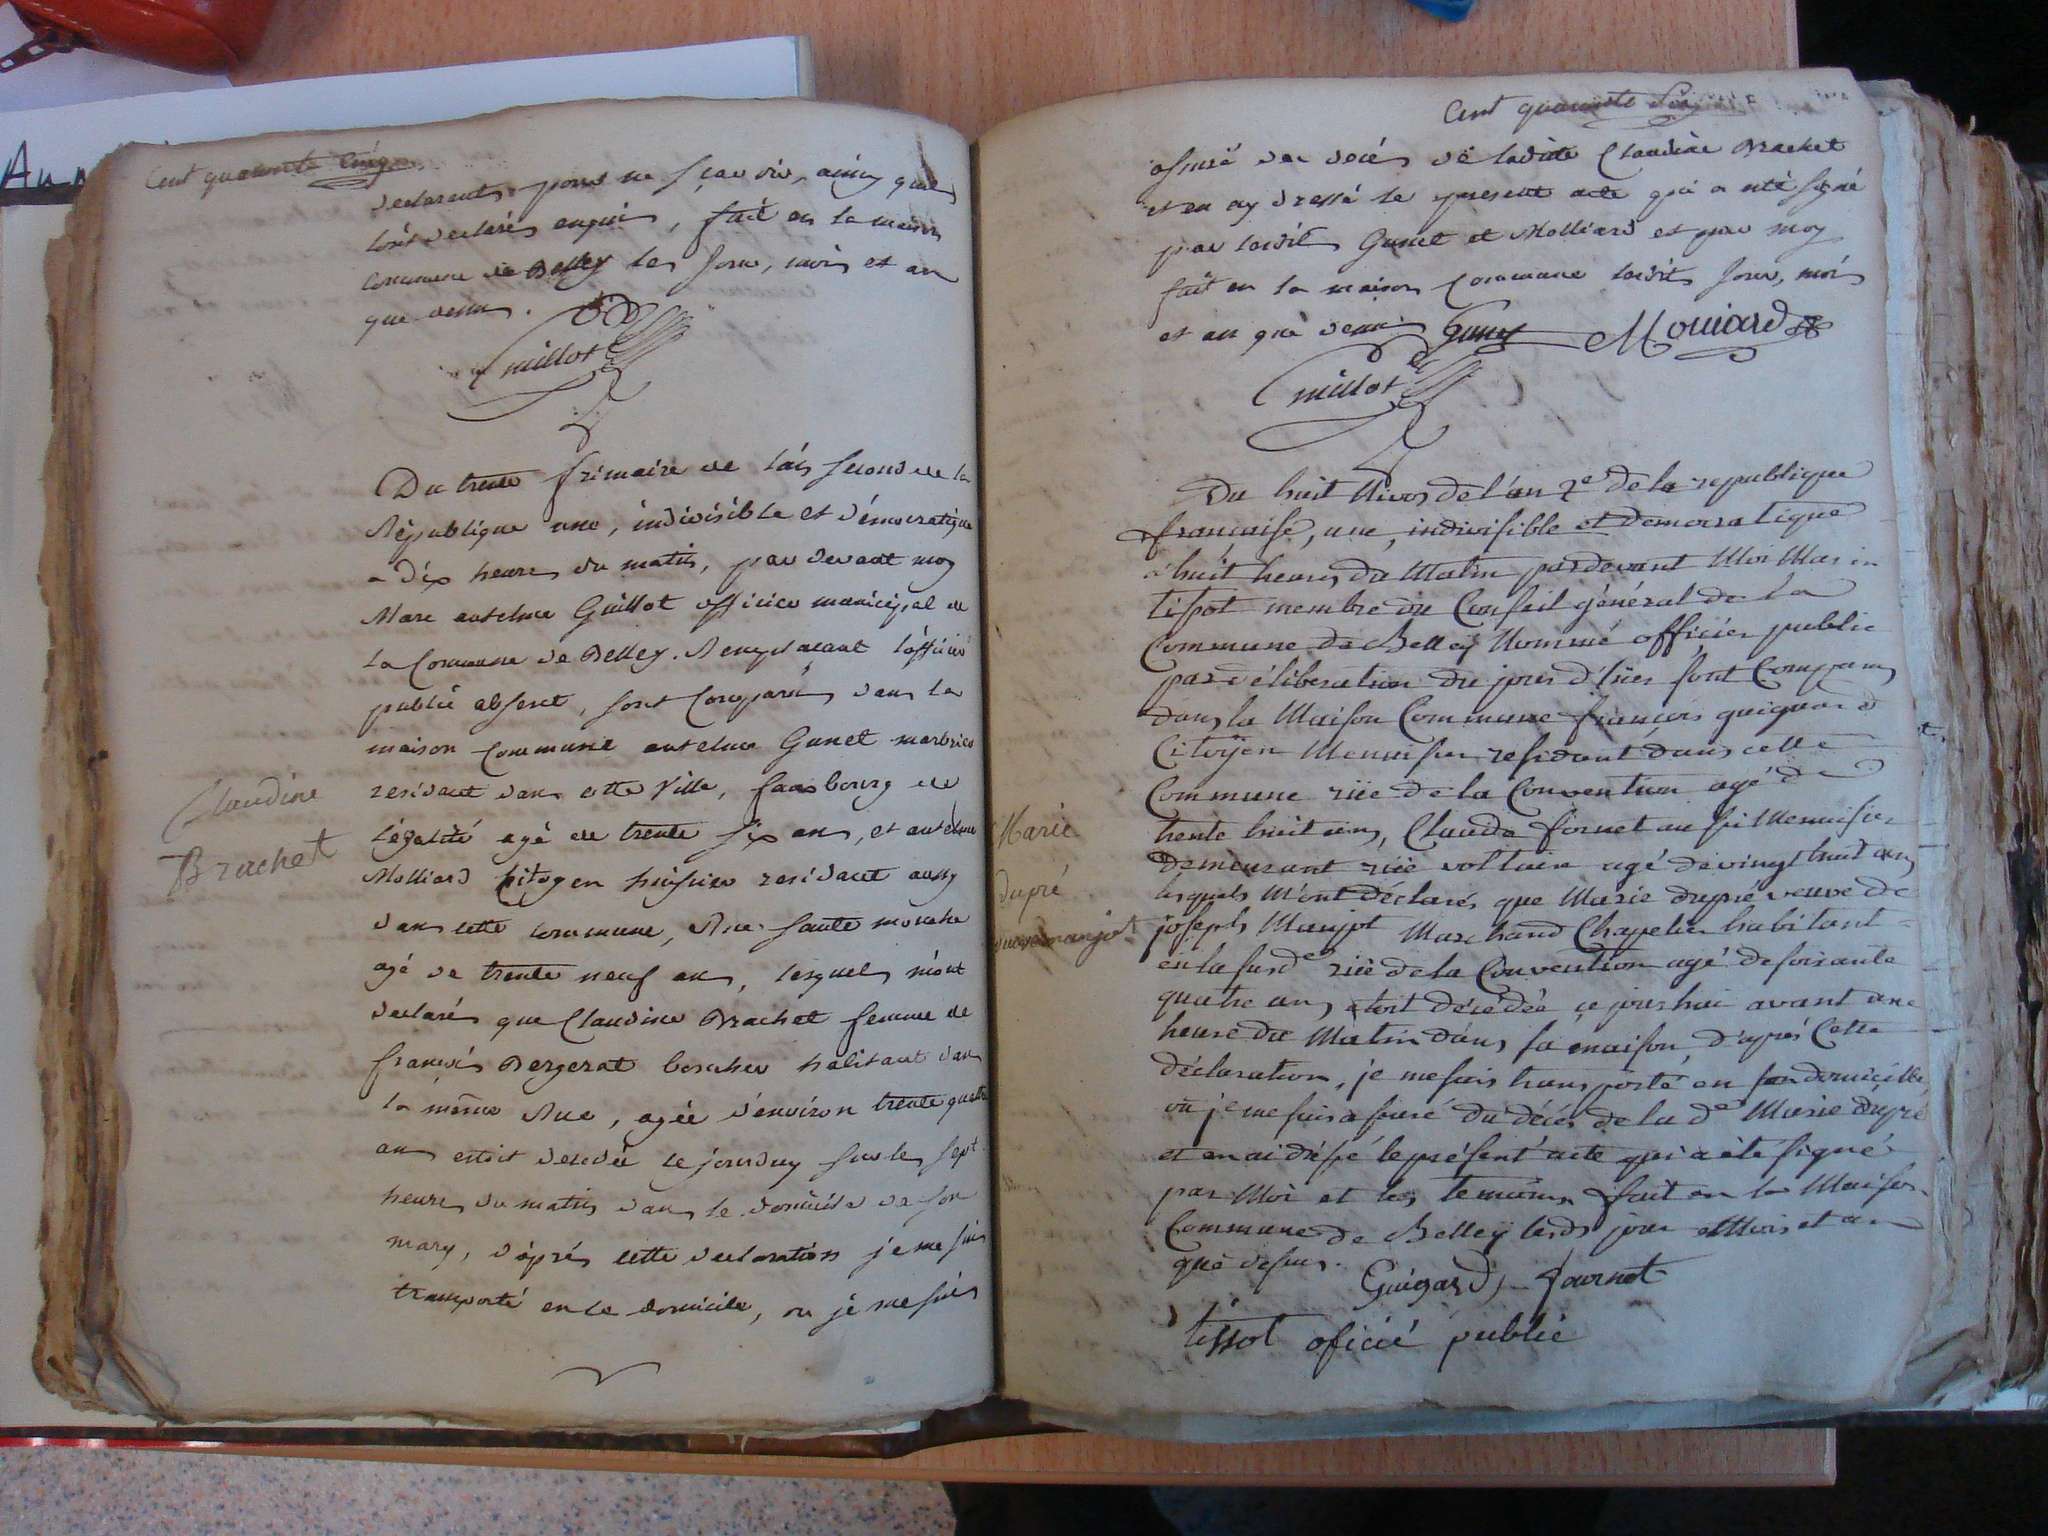 Cent quarante Cinq
declarents pour ne sçavoir, ainsy que
lont declarés enquis, fait en la maison
commune de Belley les Jour, mois et an
que dessus.
Guillot
Du trente frimaire de l'an second de la
République une, indivisible et démocratique
a dix heures du matin, par devant moy
Marc antelme Guillot officier municipal de
la Commune de Belley. Remplacant l'officier
public absent, sont Comparus dans la
maison Commune antelme Gunet
residant dans cette Ville, faubourg de
l'égalité agé de trente six ans, et antelme
Molliard Citoyen huissier residant aussy
dans cette commune, Rue
agé de trente neuf ans, lesquels m'ont
declarés que Claudine Brachet femme de
françois Bergerat boucher habitant dans
la même Rue, agée d'environ trente quatre
ans estoit decedée ce jourduy sur les sept
heures du matin dans le domicile de son
mary, d'après cette declaration je me suis
transporté en ce domicile, ou je me suis
Claudine
Brachet
Cent quarante Six
assuré du decés de ladite Claudine Brachet
et en ay dressé le present acte qui a eté signé
par lesdits Gunet et Molliard et par moy
fait en la maison Commune lesdits Jour, mois
et an que dessus Gunet Mouiard
Guillot
Du huit Nivos de l'an 2e de la republique
française, une, indivisible et democratique
a huit heures du Matin pardevant Moi Marin
tissot membre du Conseil général de la
Commune de Belleÿ Nommé officier public
par déliberation du jour d'hier sont Comparus
dans la Maison Commune françois guiguard
Citoÿen Menuisier residant dans cette
Commune rüe de la Convention agé de
trente huit ans, Claude fornet aussi Menuisier
demeurant rüe voltaire agé de vingt huit ans
lesquels M'ont déclarés que Marie dupré veuve de
joseph Manjot Marchand Chapelier habitant
en la susde rüe de la Convention agé de soixante
quatre ans, étoit décédée ce jourhui avant une
heure du Matin dans sa maison, d'aprés Cette
déclaration, je me suis transporté en son domicille
où je me suis assuré du décés de la de Marie dupré
et en ai dressé le présent acte qui a été signé
par Moi et les temoins fait en la Maison
Commune de Belleÿ lesds jour et Mois et an
que dessus.
Guigard, fournet
tissot oficié public
Marie
dupré
veuve manjot